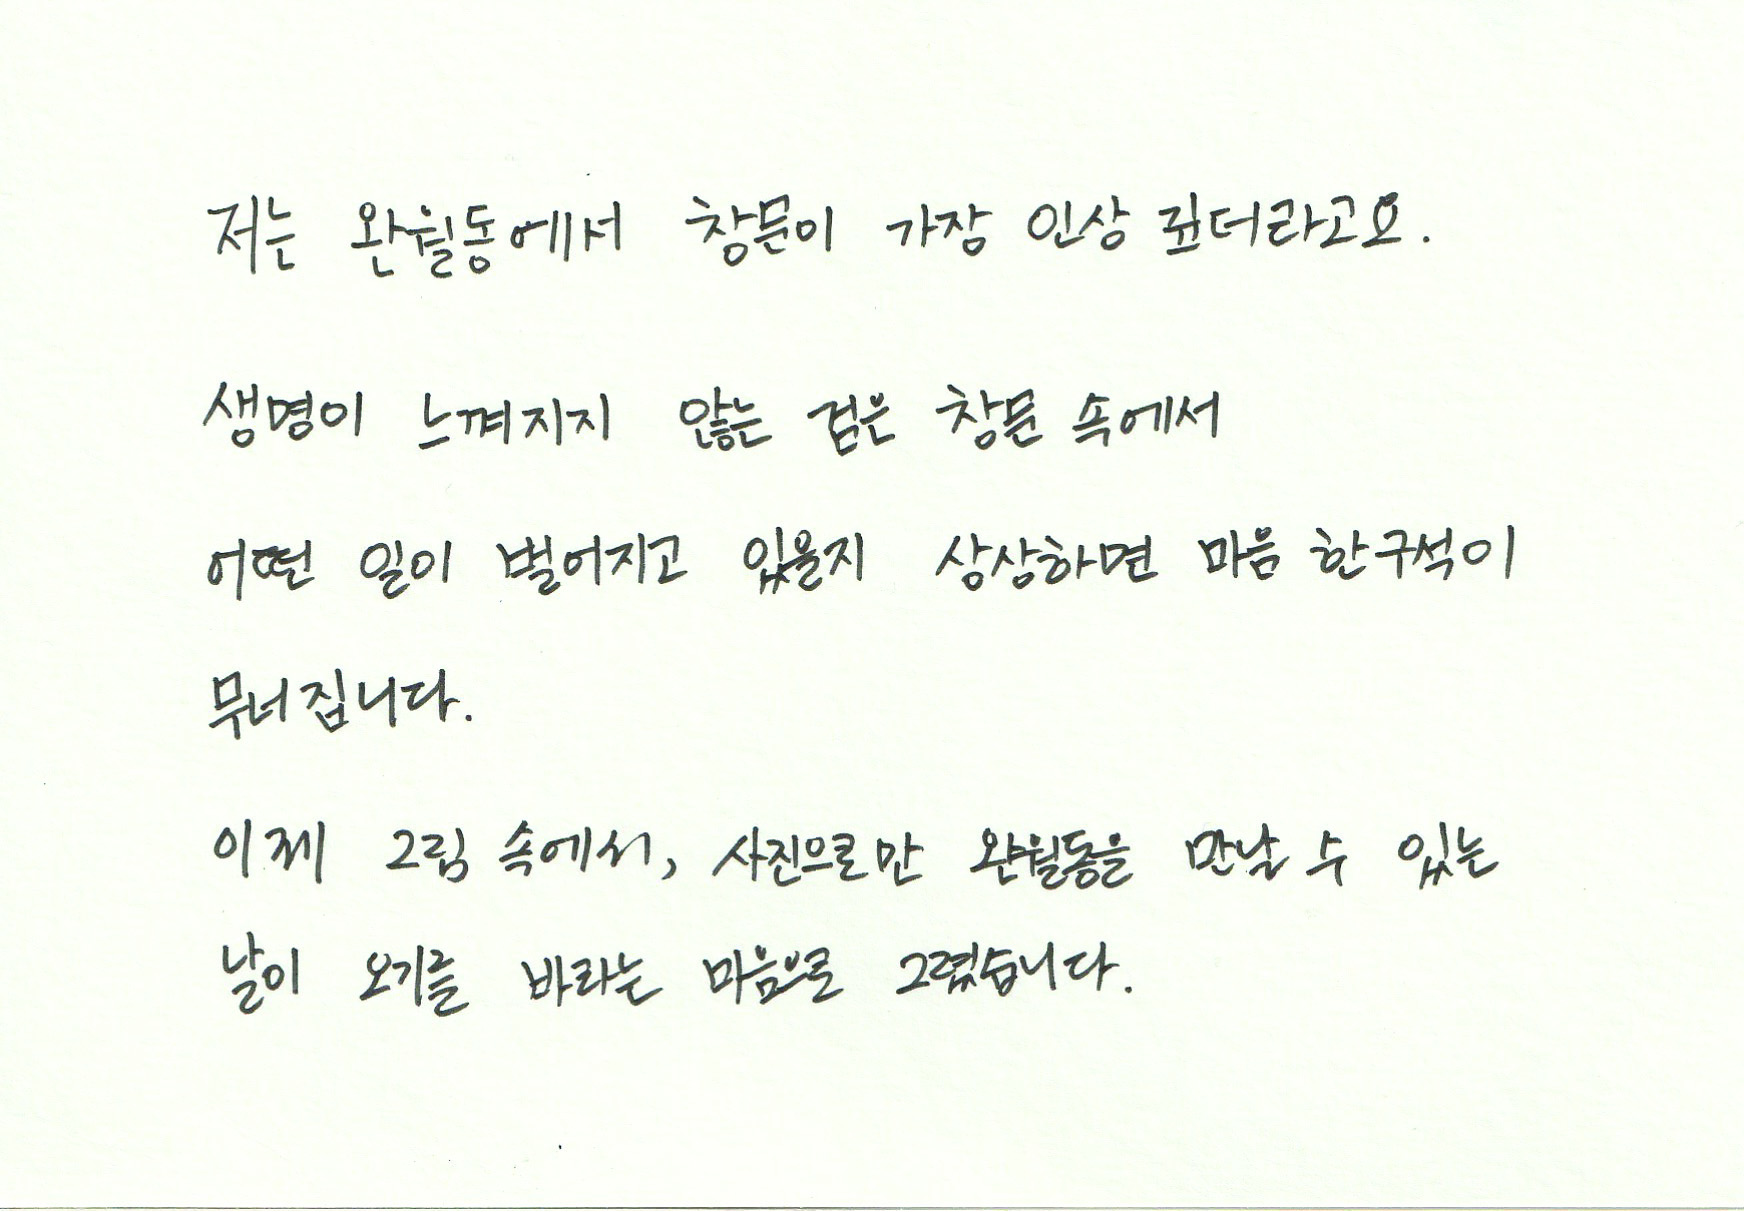 저는 완월동에서 창문이 가장 인상 깊더라고요.
생명이 느껴지지 않는 검은 창문 속에서
어떤 일이 벌어지고 있을지 상상하면 마음 한구석이
무너집니다.
이제 그림 속에서, 사진으로만 완월동을 만날 수 있는
날이 오기를 바라는 마음으로 그렸습니다.